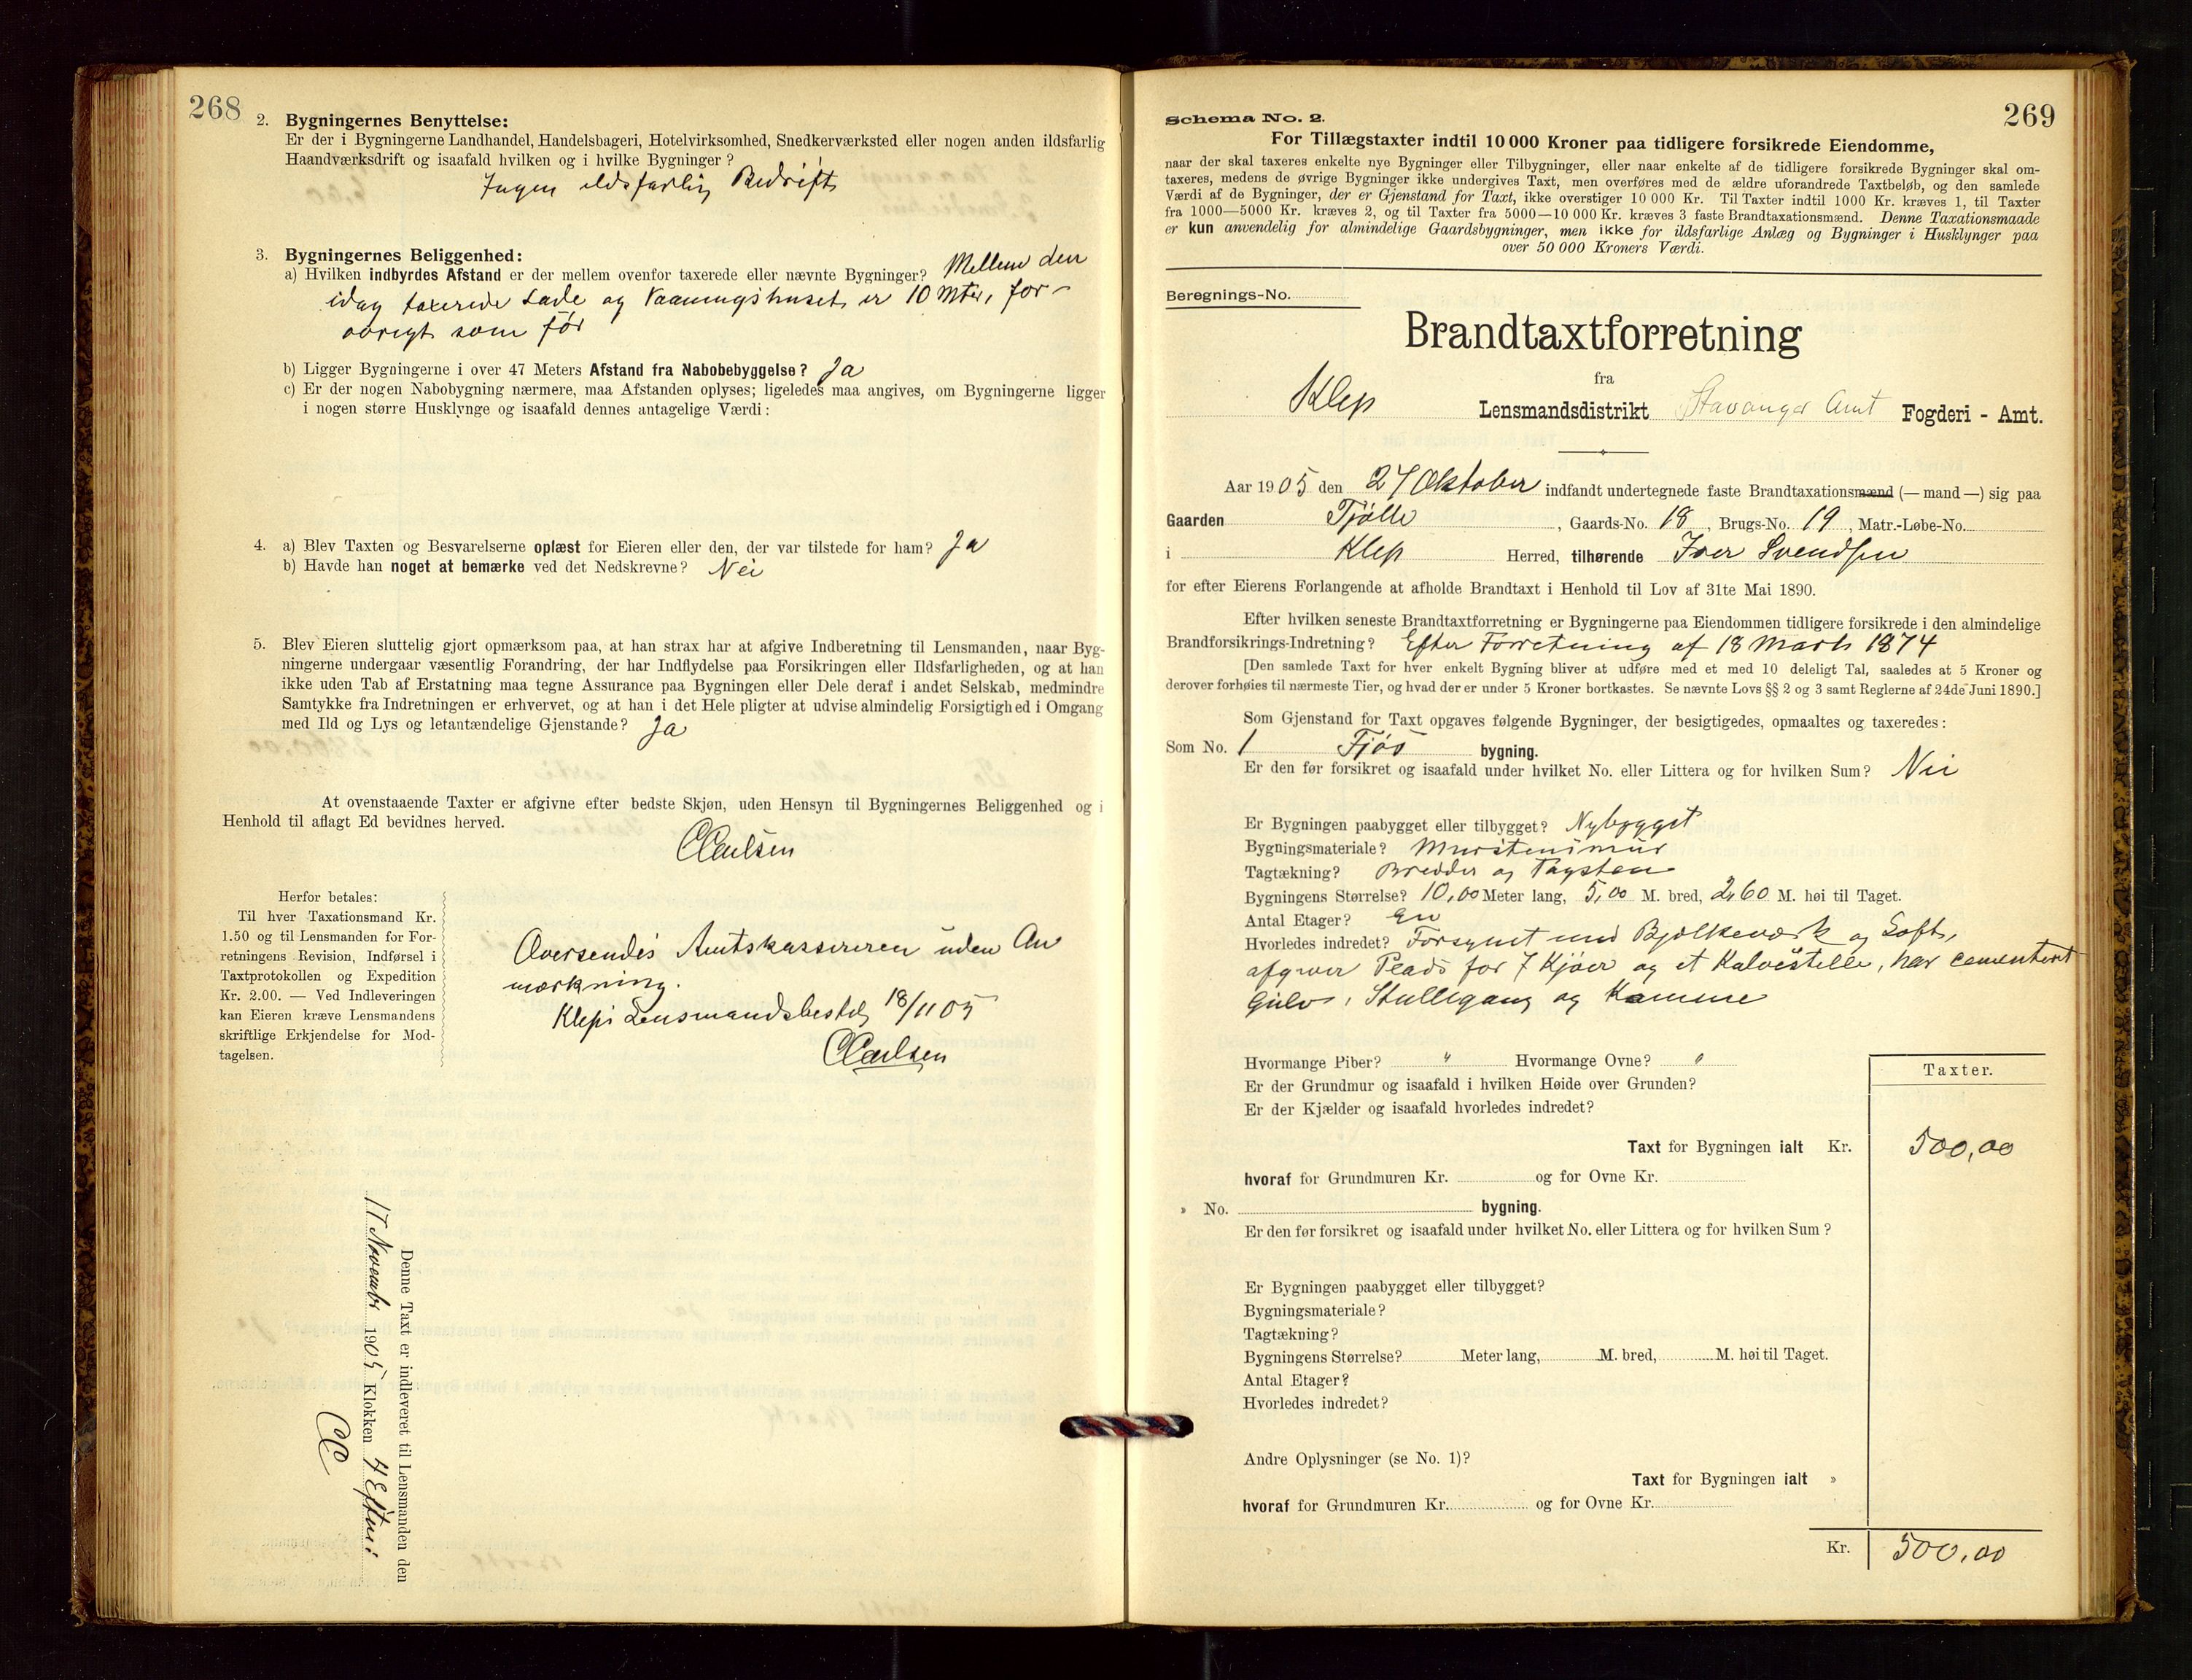 268
2. Bygningernes Benyttelse:
Er der i Bygningerne Landhandel, Handelsbageri, Hotelvirksomhed, Snedkerværksted eller nogen anden ildsfarlig
Haandværksdrift og isaafald hvilken og i hvilke Bygninger?
Ingen ildsfarlig Bedrift
3. Bygningernes Beliggenhed:
a) Hvilken indbyrdes Afstand er der mellem ovenfor taxerede eller nævnte Bygninger? Mellem den
idag taxerede Lade og Vaaningshuset er 10 Mtr, for-
øvrigt som før
b) Ligger Bygningerne i over 47 Meters Afstand fra Nabobebyggelse? Ja
c) Er der nogen Nabobygning nærmere, maa Afstanden oplyses; ligeledes maa angives, om Bygningerne ligger
i nogen større Husklynge og isaafald dennes antagelige Værdi:
4. a) Blev Taxten og Besvarelserne oplæst for Eieren eller den, der var tilstede for ham? Ja
b) Havde han noget at bemærke ved det Nedskrevne? Nei
5. Blev Eieren sluttelig gjort opmærksom paa, at han strax har at afgive Indberetning til Lensmanden, naar Byg-
ningerne undergaar væsentlig Forandring, der har Indflydelse paa Forsikringen eller Ildsfarligheden, og at han
ikke uden Tab af Erstatning maa tegne Assurance paa Bygningen eller Dele deraf i andet Selskab, medmindre
Samtykke fra Indretningen er erhvervet, og at han i det Hele pligter at udvise almindelig Forsigtighed i Omgang
med Ild og Lys og letantændelige Gjenstande? Ja
At ovenstaaende Taxter er afgivne efter bedste Skjøn, uden Hensyn til Bygningernes Beliggenhed og i
Henhold til aflagt Ed bevidnes herved.
CCarlsen
Herfor betales:
Til hver Taxationsmand Kr.
1.50 og til Lensmanden for For-
retningens Revision, Indførsel i
Taxtprotokollen og Expedition
Kr. 2.00. — Ved Indleveringen
kan Eieren kræve Lensmandens
skriftlige Erkjendelse for Mod-
tagelsen.
Oversendes Amtskassereren uden An
mærkning.
Kleps Lensmandsbestil 18/11 05
CCarlsen
Denne Taxt er indleveret til Lensmanden den
17 Novembr 1905 Klokken 4 Eftm:
CC
269
Schema No. 2.
For Tillægstaxter indtil 10 000 Kroner paa tidligere forsikrede Eiendomme,
naar der skal taxeres enkelte nye Bygninger eller Tilbygninger, eller naar enkelte af de tidligere forsikrede Bygninger skal om-
taxeres, medens de øvrige Bygninger ikke undergives Taxt, men overføres med de ældre uforandrede Taxtbeløb, og den samlede
Værdi af de Bygninger, der er Gjenstand for Taxt, ikke overstiger 10 000 Kr. Til Taxter indtil 1000 Kr. kræves 1, til Taxter
fra 1000—5000 Kr. kræves 2, og til Taxter fra 5000—10 000 Kr. kræves 3 faste Brandtaxationsmænd. Denne Taxationsmaade
er kun anvendelig for almindelige Gaardsbygninger, men ikke for ildsfarlige Anlæg og Bygninger i Husklynger paa
over 50 000 Kroners Værdi.
Beregnings-No.
Brandtaxtforretning
fra
Klep Lensmandsdistrikt Stavanger Amt Fogderi - Amt.
Aar 1905 den 27 Oktober indfandt undertegnede faste Brandtaxationsmænd (— mand —) sig paa
Gaarden Tjølle, Gaards-No. 18, Brugs-No. 19, Matr.-Løbe-No.
i Klep Herred, tilhørende Iver Svendsen
for efter Eierens Forlangende at afholde Brandtaxt i Henhold til Lov af 31te Mai 1890.
Efter hvilken seneste Brandtaxtforretning er Bygningerne paa Eiendommen tidligere forsikrede i den almindelige
Brandforsikrings-Indretning? Efter Forretning af 18 Marts 1874
[Den samlede Taxt for hver enkelt Bygning bliver at udføre med et med 10 deleligt Tal, saaledes at 5 Kroner og
derover forhøies til nærmeste Tier, og hvad der er under 5 Kroner bortkastes. Se nævnte Lovs §§ 2 og 3 samt Reglerne af 24de Juni 1890.]
Som Gjenstand for Taxt opgaves følgende Bygninger, der besigtigedes, opmaaltes og taxeredes:
Som No. 1 Fjøs bygning.
Er den før forsikret og isaafald under hvilket No. eller Littera og for hvilken Sum? Nei
Er Bygningen paabygget eller tilbygget? Nybygget
Bygningsmateriale? Murstensmur
Tagtækning? Bredder og Tagsten
Bygningens Størrelse? 10,00 Meter lang, 5,00 M. bred, 2,60 M. høi til Taget.
Antal Etager? En
Hvorledes indredet? Forsynet med Bjelkeværk og Loft,
afgiver Plads for 7 Kjøer og et Kalvestelle, har cementert
Gulv, Stullegang og Kamme
Hvormange Piber? " Hvormange Ovne? "
Er der Grundmur og isaafald i hvilken Høide over Grunden?
Er der Kjælder og isaafald hvorledes indredet?
Taxter.
Taxt for Bygningen ialt Kr. 500,00
hvoraf for Grundmuren Kr. og for Ovne Kr.
» No. bygning.
Er den før forsikret og isaafald under hvilket No. eller Littera og for hvilken Sum?
Er Bygningen paabygget eller tilbygget?
Bygningsmateriale?
Tagtækning?
Bygningens Størrelse? Meter lang, M. bred, M. høi til Taget.
Antal Etager?
Hvorledes indredet?
Andre Oplysninger (se No. 1)?
Taxt for Bygningen ialt »
hvoraf for Grundmuren Kr. og for Ovne Kr.
Kr. 500,00